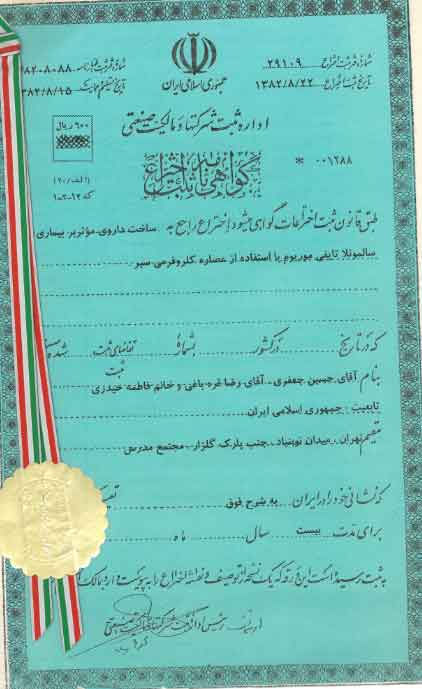 شماره و ثبت اختراع ۲۹۱۰۹
تاریخ ثبت اختراع ۱۳۸۲/۸/۲۲
جمهوری اسلامی ایران
اداره ثبت شرکتها و مالکیت صنعتی
۶۰۰ ریال
گواهی نامه ثبت اختراع
* ۰۰۱۲۸۸
طبق قانون ثبت اختراعات گواهی میشود اختراع راجع به ساخت داروی مؤثر بر بیماری
سالمونلا تایفی موریوم با استفاده از عصاره کلروفرمی سیر
که در تاریخ در کشور بشماره تقاضای ثبت شده
ثبت
بنام آقای حسین جعفری آقای رضا قره باغی و خانم فاطمه حیدری
تابعیت جمهوری اسلامی ایران
مقیم تهران میدان نوبنیاد جنب پارک گلزار مجتمع مدرس
که نشانی خود را در ایران به شرح فوق
برای مدت بیست سال ماه
به ثبت رسیده است این ورقه که یک نسخه از توصیف و نقشه اختراع را به پیوست دارد بمالک